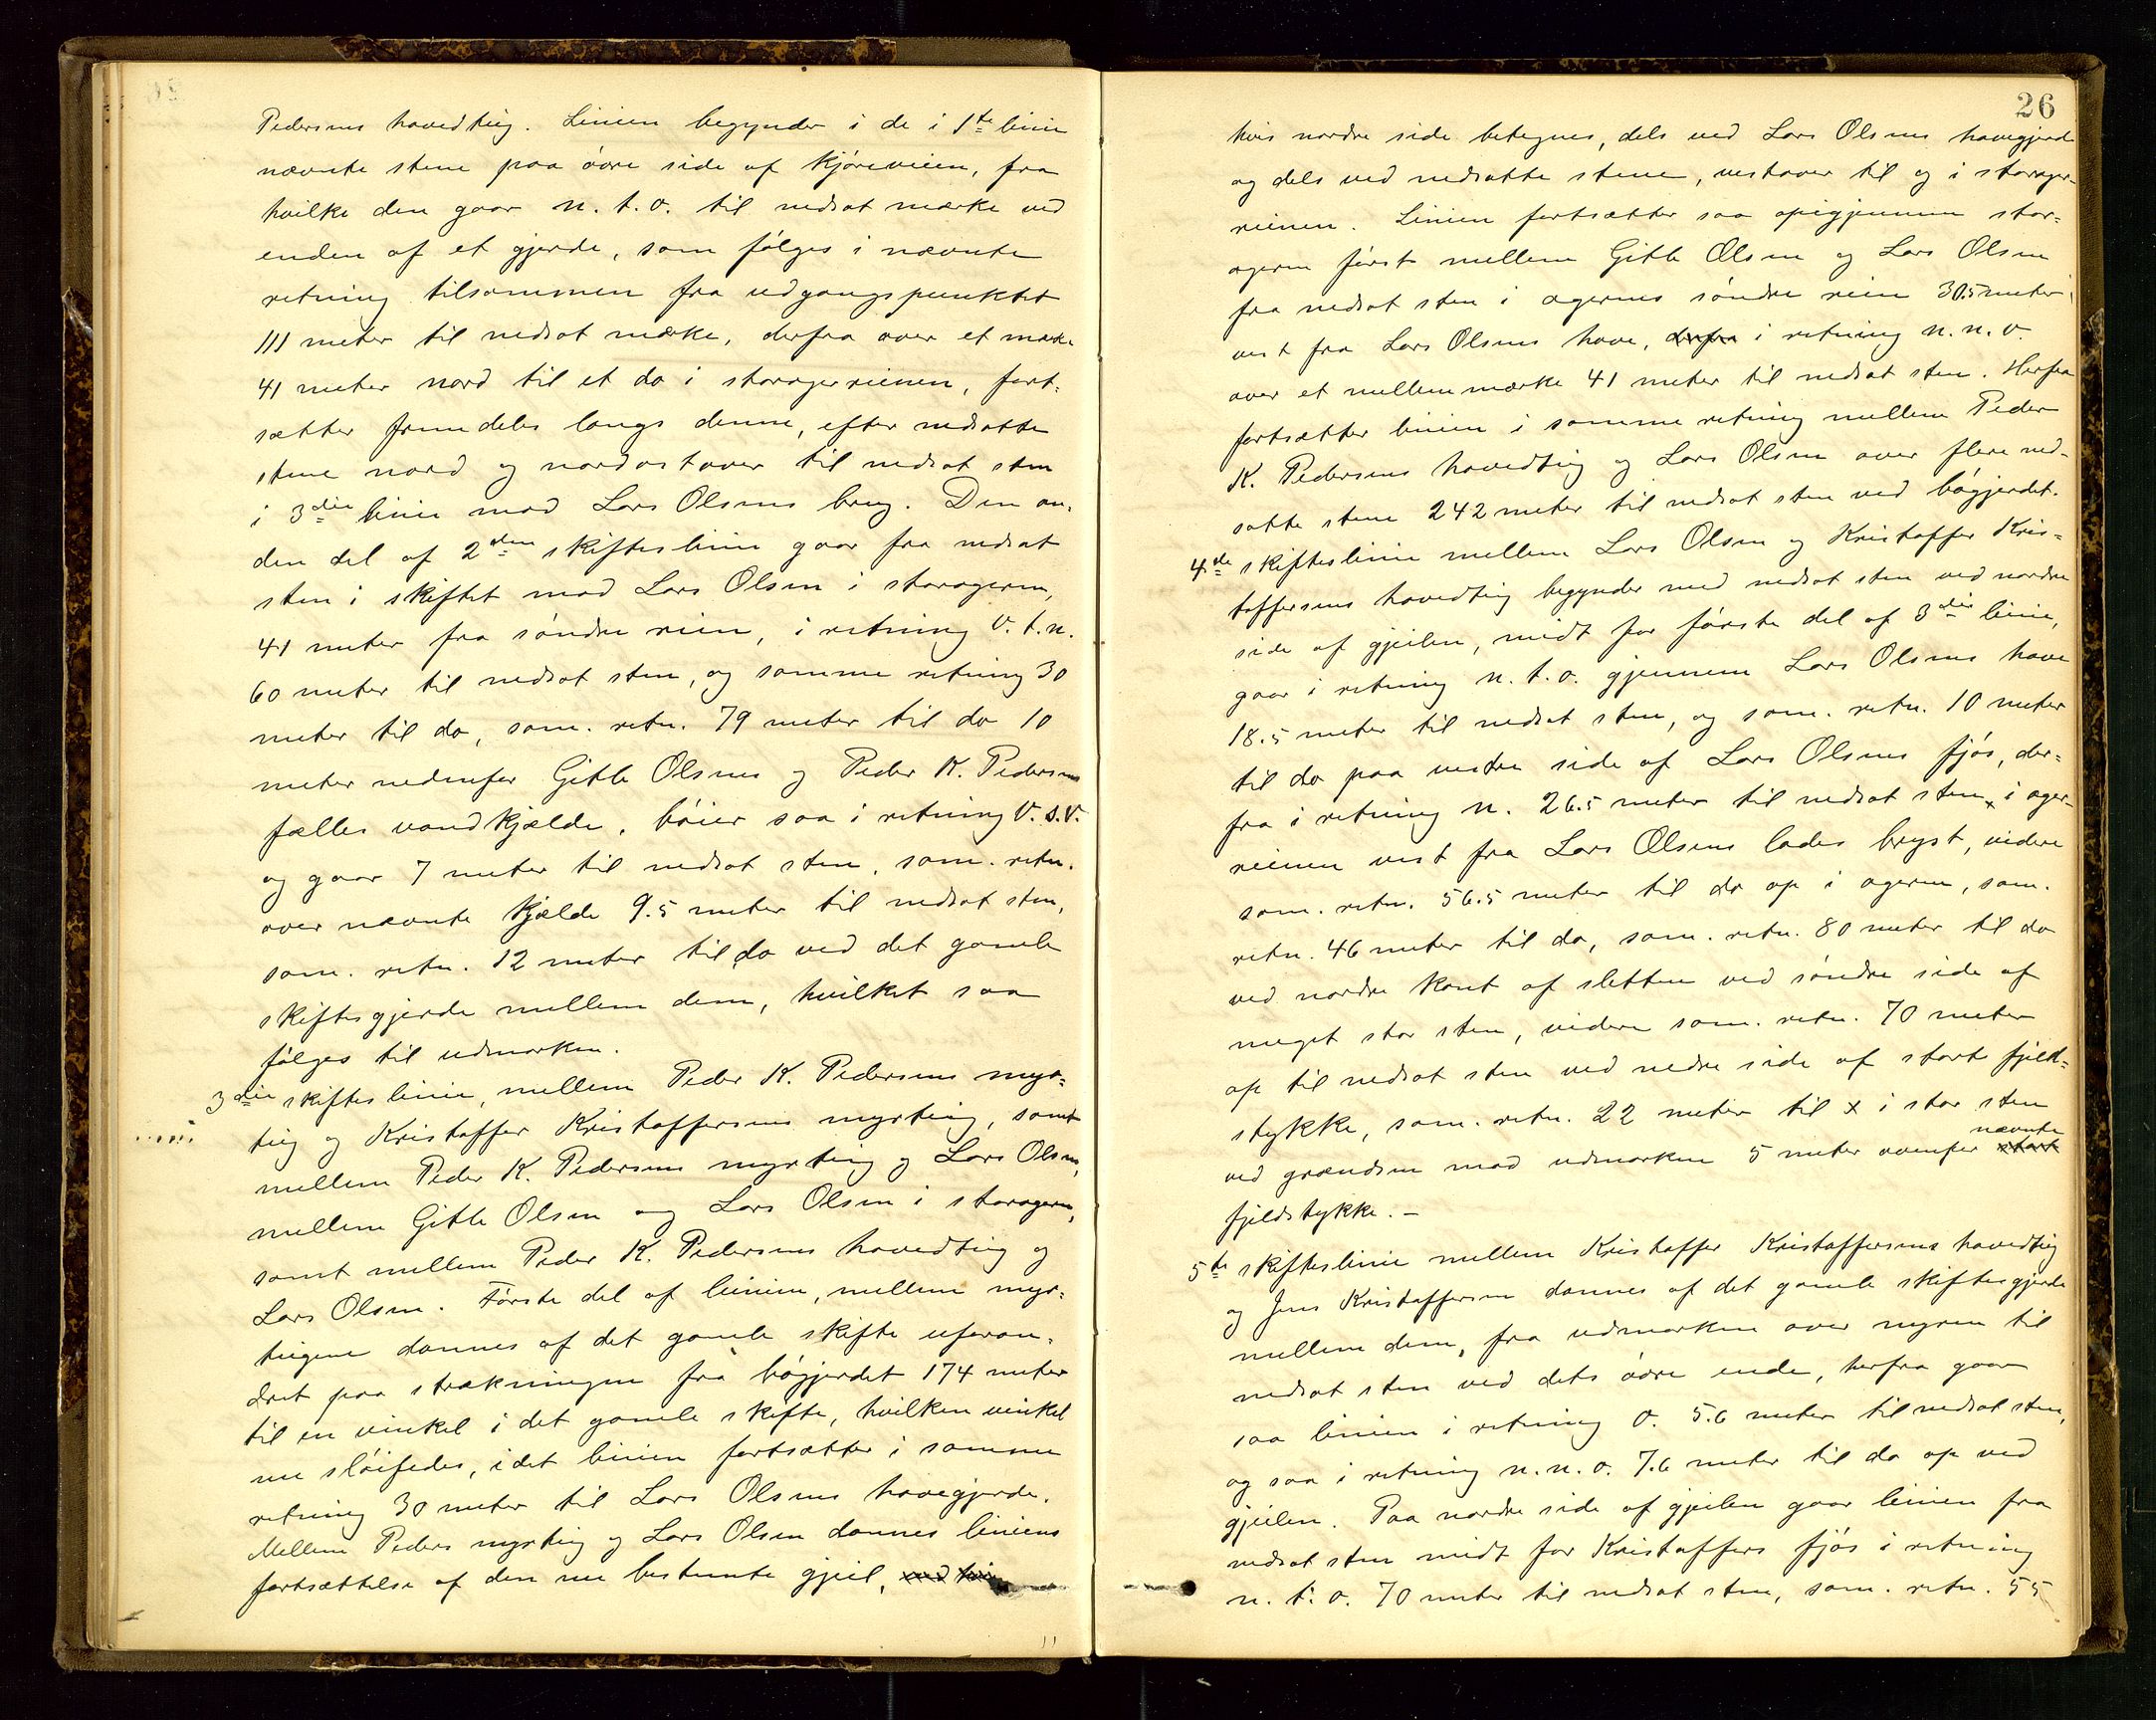 Pedersens hovedteig. Linien begynder i de i 1ste linie
nævnte stene paa øvre side af kjøreveien, fra
hvilke den gaar n. t. o. til nedsat mærke ved
enden af et gjerde, som følges i nævnte
retning tilsammen fra udgangspunktet
111 meter til nedsat mærke, derfra over et mærke
41 meter nord til et do i storagerreinen, fort-
sætter fremdeles langs denne, efter nedsatte
stene nord og nordostover til nedsat sten
i 3die linie mod Lars Olsens brug. Den an-
den del af 2den skifteslinie gaar fra nedsat
sten i skiftet mod Lars Olsen i storageren,
41 meter fra søndre rein, i retning v. t. n.
60 meter til nedsat sten, og samme retning 30
meter til do, sam. retn. 79 meter til do 10
meter nedenfor Gitle Olsens og Peder K. Pedersens
fælles vandkjelde, bøier saa i retning v. s. v.
og gaar 7 meter til nedsat sten, sam. retn.
over nævnte kjelde 9.5 meter til nedsat sten,
sam. retn. 12 meter til do ved det gamle
skiftesgjerde mellem dem, hvilket saa
følges til udmarken.
3die skifteslinie, mellem Peder K. Pedersens myr-
teig og Kristoffer Kristoffersens myrteig, samt
mellem Peder K. Pedersens myrteig og Lars Olsen,
mellem Gitle Olsen og Lars Olsen i storageren,
samt mellem Peder K. Pedersens hovedteig og
Lars Olsen. Første del af linien, mellem myr-
teigene dannes af det gamle skifte uforan-
dret paa strækningen fra bøgjerdet 174 meter
til en vinkel i det gamle skifte, hvilken vinkel
nu sløifedes, idet linien fortsætter i samme
retning 30 meter til Lars Olsens havegjerde.
Mellem Peders myrteig og Lars Olsen dannes liniens
fortsættelse af den nu bestemte gjeil, ved hvis
11
26
hvis nordre side betegnes, dels ved Lars Olsens havegjerde
og dels ved nedsatte stene, vestover til og i storager-
reinen. Linien fortsætter saa opigjennem stor-
ageren først mellem Gitle Olsen og Lars Olsen
fra nedsat sten i agerens søndre rein 30.5 meter
vest fra Lars Olsens have, derfra i retning n. n. v.
over et mellemmærke 41 meter til nedsat sten. Herfra
fortsætter linien i samme retning mellem Peder
K. Pedersens hovedteig og Lars Olsen over flere ned-
satte stene 242 meter til nedsat sten ved bøgjerdet.
4de skifteslinie mellem Lars Olsen og Kristoffer Kris-
toffersens hovedteig begynder med nedsat sten ved nordre
side af gjeilen, midt for første del af 3die linie,
gaar i retning n. t. o. gjennem Lars Olsens have
18.5 meter til nedsat sten, og sam. retn. 10 meter
til do paa vestre side af Lars Olsens fjøs, der-
fra i retning n. 26.5 meter til nedsat sten x i ager-
reinen vest fra Lars Olsens lades bryst, videre
sam. retn. 56.5 meter til do op i ageren, sam.
retn. 46 meter til do, sam. retn. 80 meter til do
ved nordre kant af sletten ved søndre side af
meget stor sten, videre sam. retn. 70 meter
op til nedsat sten ved nedre side af stort fjeld-
stykke, sam. retn. 22 meter til x i stor sten
ved grændsen mod udmarken 5 meter ovenfor stort nævnte
fjeldstykke. –
5te skifteslinie mellem Kristoffer Kristoffersens hovedteig
og Jens Kristoffersen dannes af det gamle skiftesgjerde
mellem dem, fra udmarken over myren til
nedsat sten ved dets øvre ende, herfra gaar
saa linien i retning o. 5.6 meter til nedsat sten,
og saa i retning n. n. o. 7.6 meter til do op ved
gjeilen. Paa nordre side af gjeilen gaar linien fra
nedsat sten midt for Kristoffers fjøs i retning
n. t. o. 70 meter til nedsat sten, sam. retn. 55